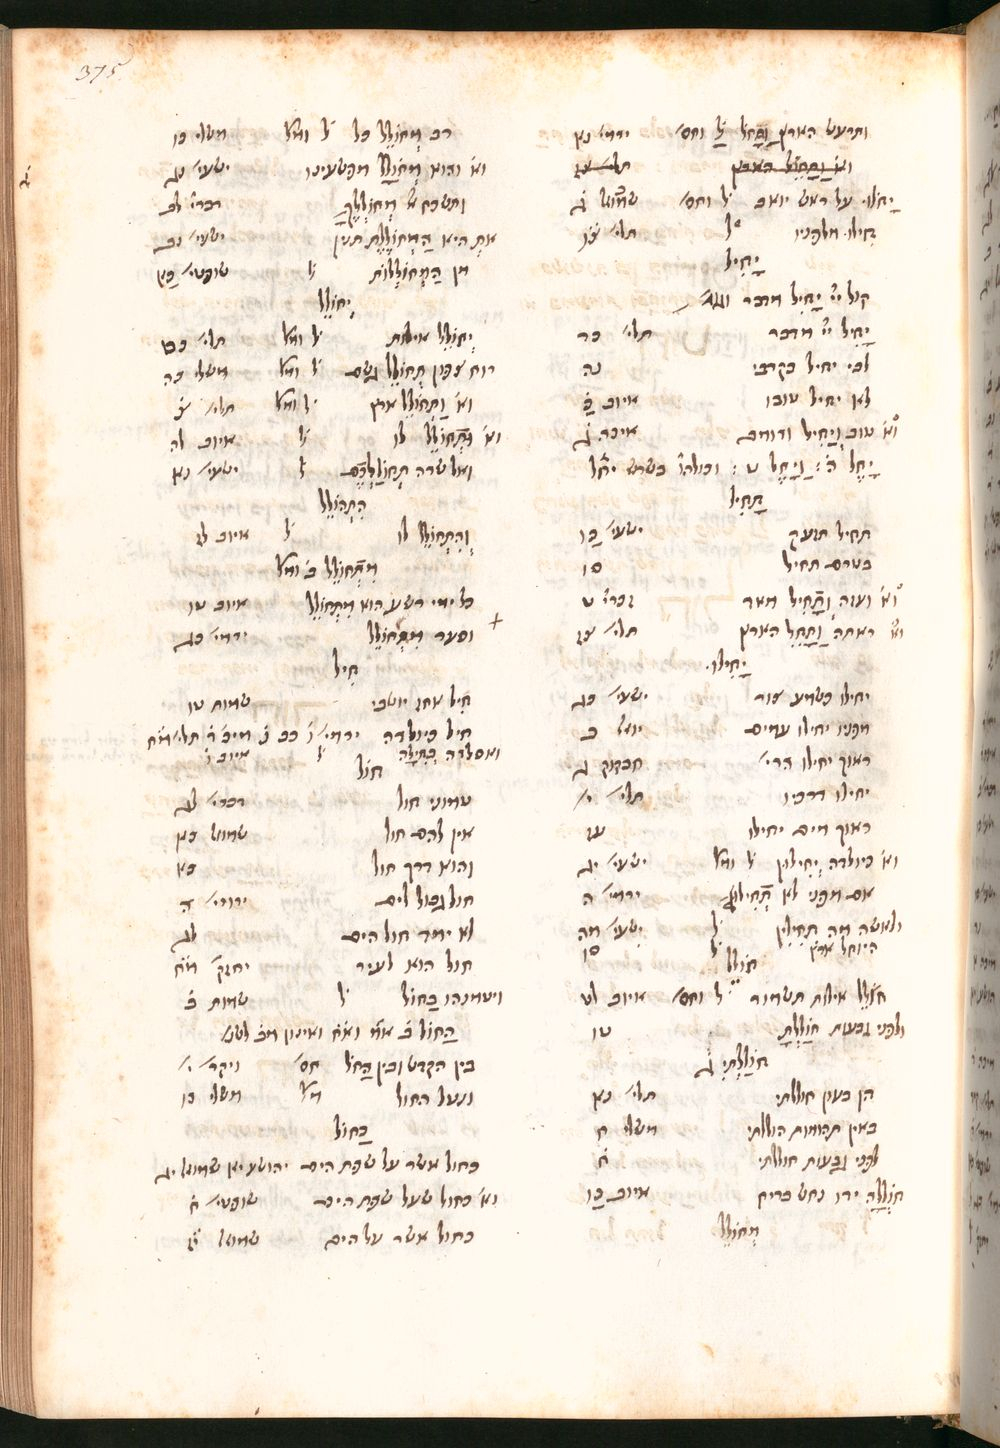 375
ותרעש הארץ וַתָּחֹל ל̇ וחס׳ ירמי׳ נא
וא׳ וַתָּחֵל הארץ תלי׳ צז
יָחֻלוּ על ראש יואב ל̇ וחס׳ שמואל ג
חִילוּ מלפניו ל̇ תלי׳ צו
יָחִיל
קול יי׳ יָחִיל מדבר וגו׳
יָחִיל יי׳ מדבר תלי׳ כד
לבי יחיל בקרבי נה
לא יחיל טובו איוב כ̇
וא׳ טוב וְיָחִיל ודומם איכה ג
יָחֶל ה̇ : וַיָּחֶל ט : וכולהו בשרש יחל
תָחִיל
תחיל תזעק ישעי׳ כו
בטרם תחיל סו
וא׳ ועזה וְתָחִיל מאד זכרי׳ ט
וא׳ ראתה וַתָּחֵל הארץ תלי׳ צז
יָחִילוּ
יחילו כשמע צור ישעי׳ כג
מפניו יחילו עמים יואל ב
ראוך יחילו הרי׳ חבקוק ג
יחילו דרכיו תלי׳ י׳
ראוך מים יחילו עז
וא׳ כיולדה יְחִילוּן ל̇ ומל׳ ישעי׳ יג
אם מפני לא תָחִילוּ ירמי׳ ה
ולאשה מה תְחִילִין ל̇ ישעי׳ מה
היוחל ארץ ל̇ סו
חֹולֵל
חֹלֵל אילות תשמור ל̇ וחס׳ איוב לט
ולפני גבעות חֹולָלְתָּ טו
חֹולָלְתִּי ג̇
הן בעון חוללתי תלי׳ נא
באין תהומות חוללתי משלי ח
לפני גבעות חוללתי ח̇
חֹלֲלָה ידו נחש בריח איוב כו
מְחֹולֵל
רב מְחֹולֵל כל ל̇ ומל׳ משלי כו
וא׳ והוא מְחֹלָל מפשעינו ישעי׳ נג
ותשכח אל מְחֹלְלֶךָ דברי׳ לב
את היא הַמְחֹולֶלֶת תנין ישעי׳ נב
מן הַמְּחֹולְלֹות ל̇ שופטי׳ כא
יְחֹולֵל
יְחֹולֵל אילות ל̇ ומל׳ תלי׳ כט
רוח צפון תְּחֹולֵל גשם ל̇ ומל׳ משלי כה
וא׳ וַתְּחֹולֵל ארץ ל̇ ומל׳ תלי׳ צ̇
וא׳ וְתִתְחֹולֵל לו ל̇ איוב לה
ואל שרה תְּחֹולֶלְכֶם ל̇ ישעי׳ נא
הִתְחֹולֵל
וְהִתְחֹולֵל לו ל̇ איוב לז
מִתְחֹולֵל ב̇ ומל׳
כל ימי רשע הוא מִתְחֹולֵל איוב טו
וסער מִתְחֹולֵל ירמי׳ כג
חִיל
חִיל אחז יושבי שמות טו
חיל כיולדה ירמי׳ ו̇ כב נ̇ מיכ׳ ד̇ תלי׳ מח
ואסלדה בְחִילָה ל̇ איוב ו̇
חֹול
טמוני חול דברי׳ לג
אין להם חול שמואל כא
והוא דרך חול כא
חול גבול לים ירמי׳ ה
לא ימד חול הים לג
חול הוא לעיר יחזק׳ מח
ויטמנהו בַּחֹול ל̇ שמות ב̇
הַחֹול ב̇ א׳ מל׳ וא׳ חס׳ ואינון מב̇ לשנ׳
בין הקדש ובין הַחֹל חס׳ ויקר׳ י׳
ונטל החול מל׳ משלי כז
כַחֹול
כחול אשר על שפת הים יהושע יא שמואל יג
וא׳ כחול שעל שפת הים שופטי׳ ז̇
כחול אשר על הים שמואל יז̇